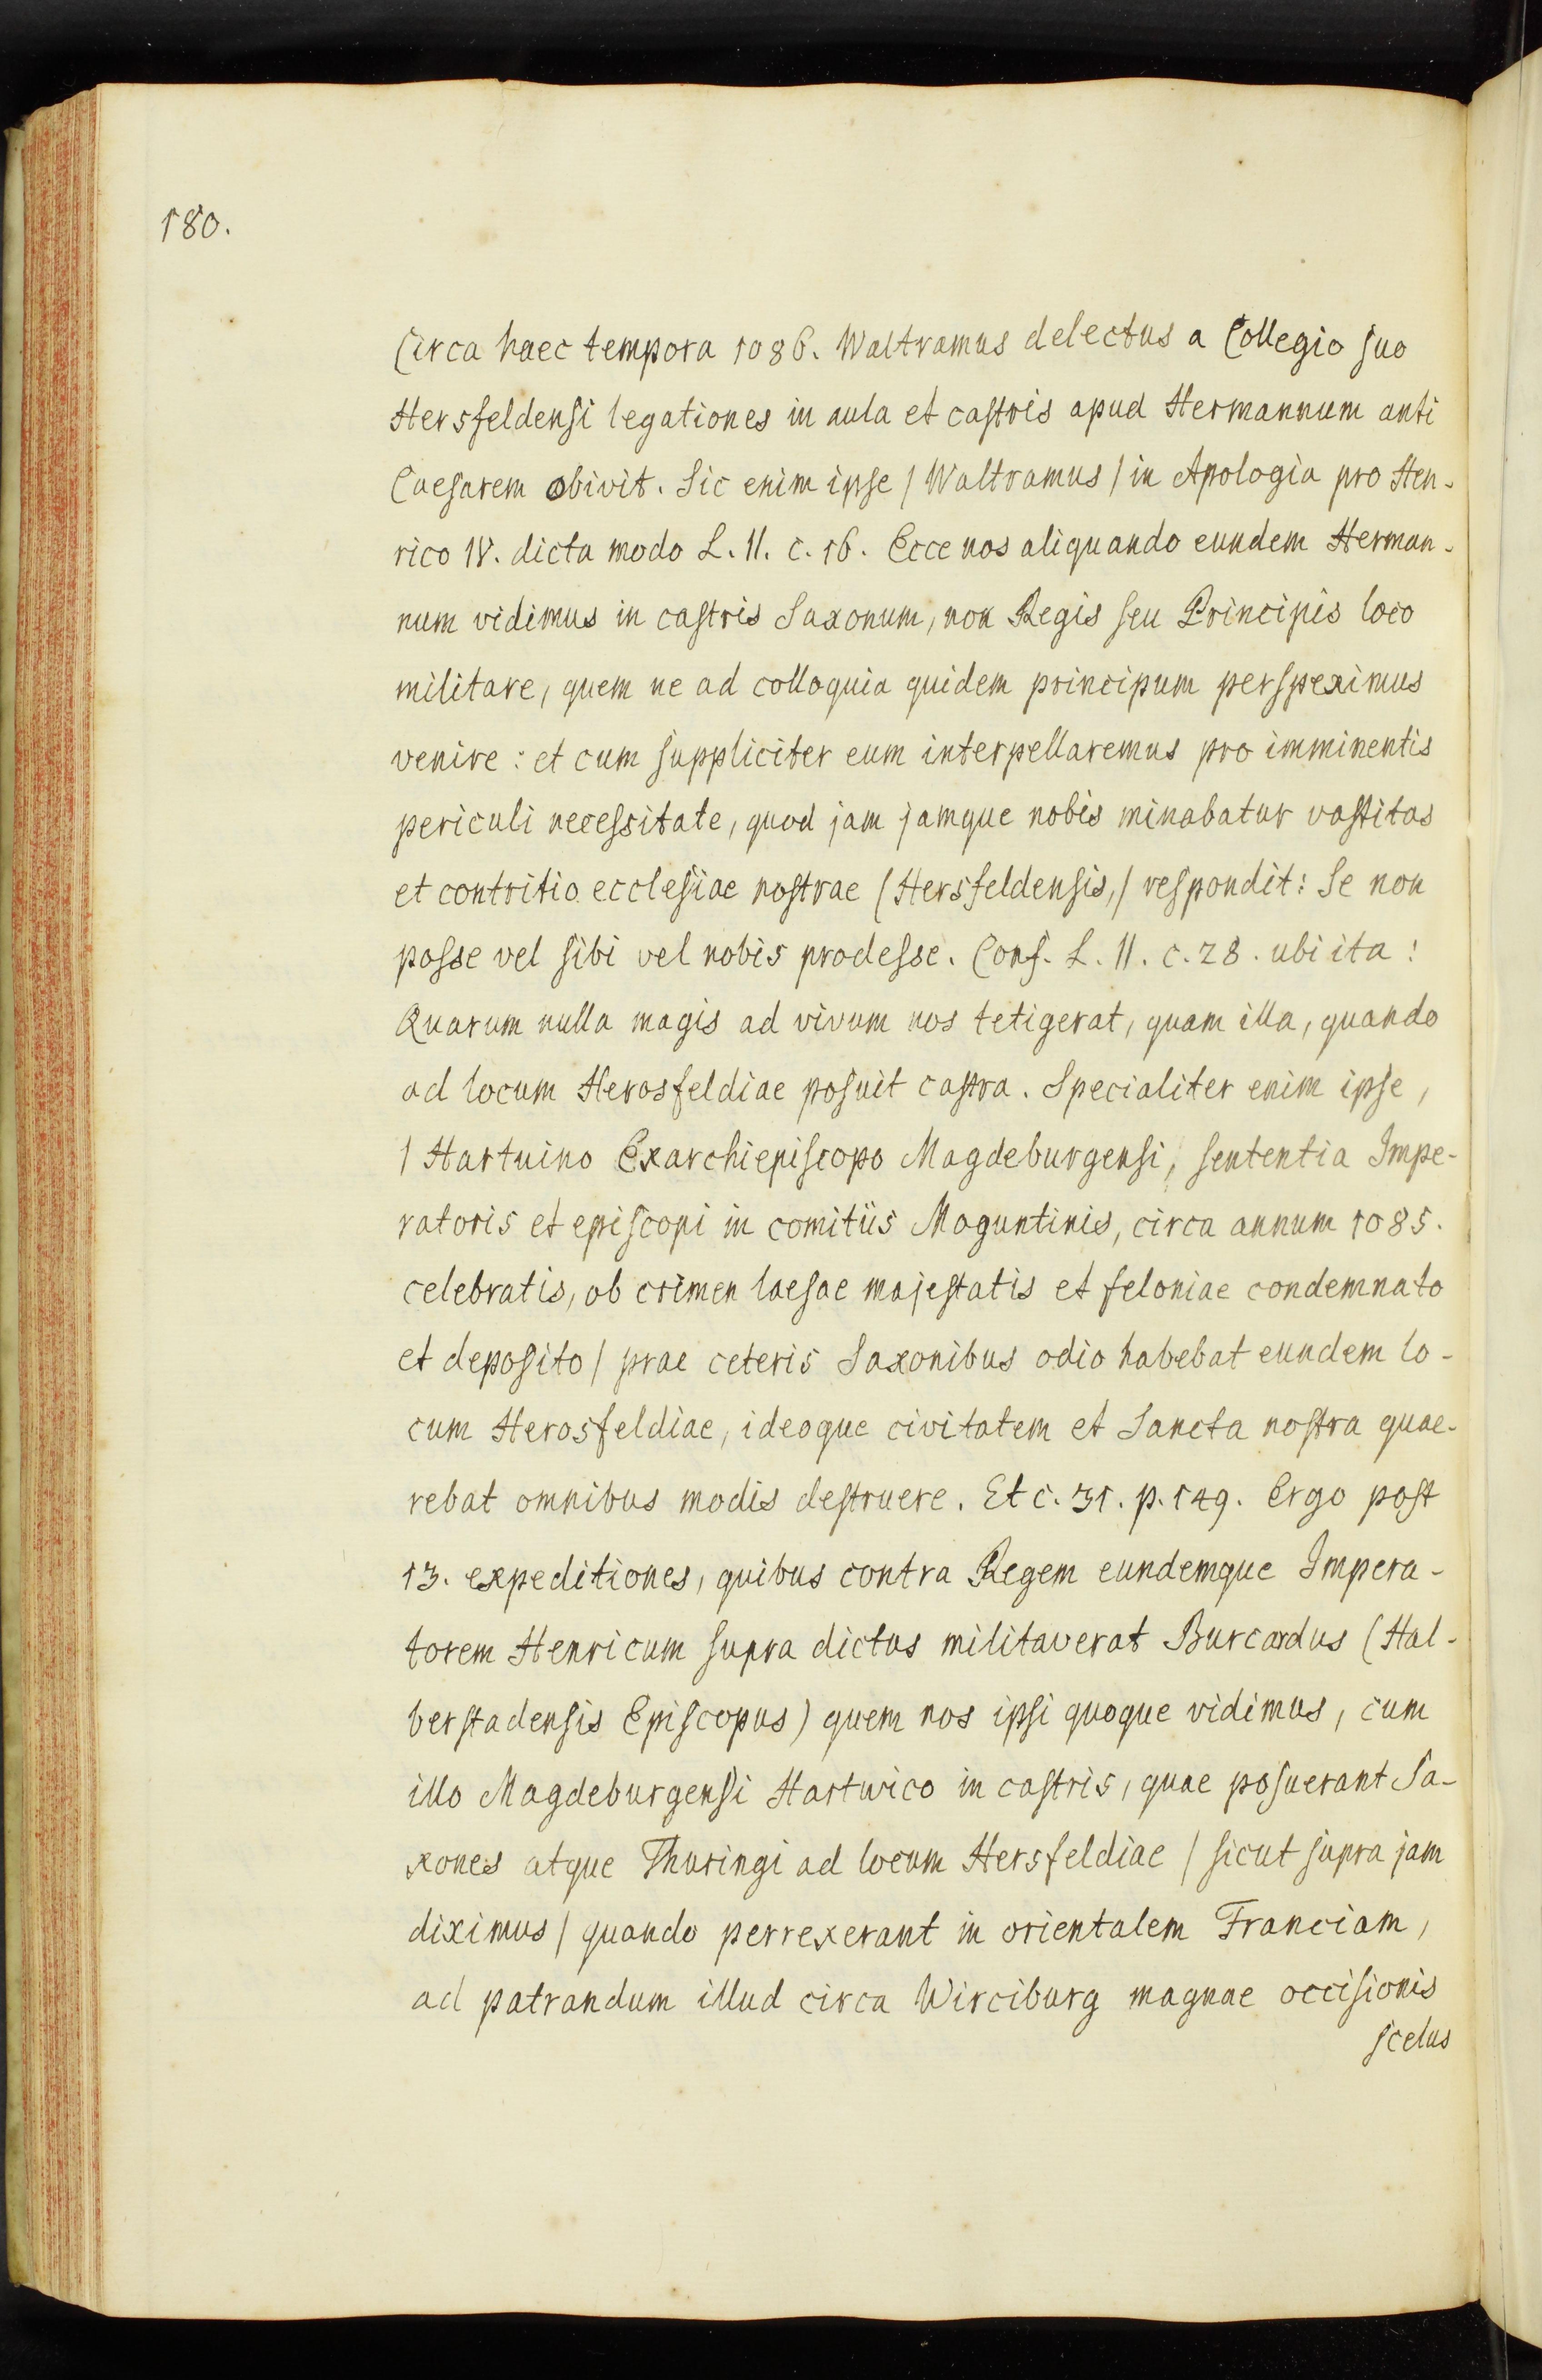 180.
Circa haec tempora 1086. Waltramus delectus a Collegio suo
Hersfeldensi legationes in aula et castris apud Hermannum anti
Caesarem obivit. Sic enim ipse / Waltramus / in Apologia pro Hen-
rico IV. dicta modo L. II. c. 16. Ecce nos aliquando eundem Herman-
num vidimus in castris Saxonum, non Regis seu Principis loco
militare, quem ne ad colloquia quidem principum perspeximus
venire: et cum suppliciter eum interpellaremus pro imminentis
periculi necessitate, quod jam jamque nobis minabatur vastitas
et contritio ecclesiae nostrae (Hersfeldensis,/ respondit: Se non
posse vel sibi vel nobis prodesse. Conf. L. II. c. 28. ubi ita:
Quarum nulla magis ad vivum nos tetigerat, quam illa, quando
ad locum Herosfeldiae posuit castra. Specialiter enim ipse,
/ Hartuino Exarchiepiscopo Magdeburgensi, sententia Impe-
ratoris et episcopi in comitiis Moguntinis, circa annum 1085.
celebratis, ob crimen laesae majestatis et feloniae condemnato
et deposito / prae ceteris Saxonibus odio habebat eundem lo-
cum Herosfeldiae, ideoque civitatem et Sancta nostra quae-
rebat omnibus modis destruere. Et c. 31. p. 149. Ergo post
13. expeditiones, quibus contra Regem eundemque Impera-
torem Henricum supra dictus militaverat Burcardus (Hal-
berstadensis Episcopus) quem nos ipsi quoque vidimus, cum
illo Magdeburgensi Hartwico in castris, quae posuerant Sa-
xones atque Thuringi ad locum Hersfeldiae / sicut supra jam
diximus / quando perrexerant in orientalem Franciam,
ad patrandum illud circa Wirciburg magnae occisionis
scelus